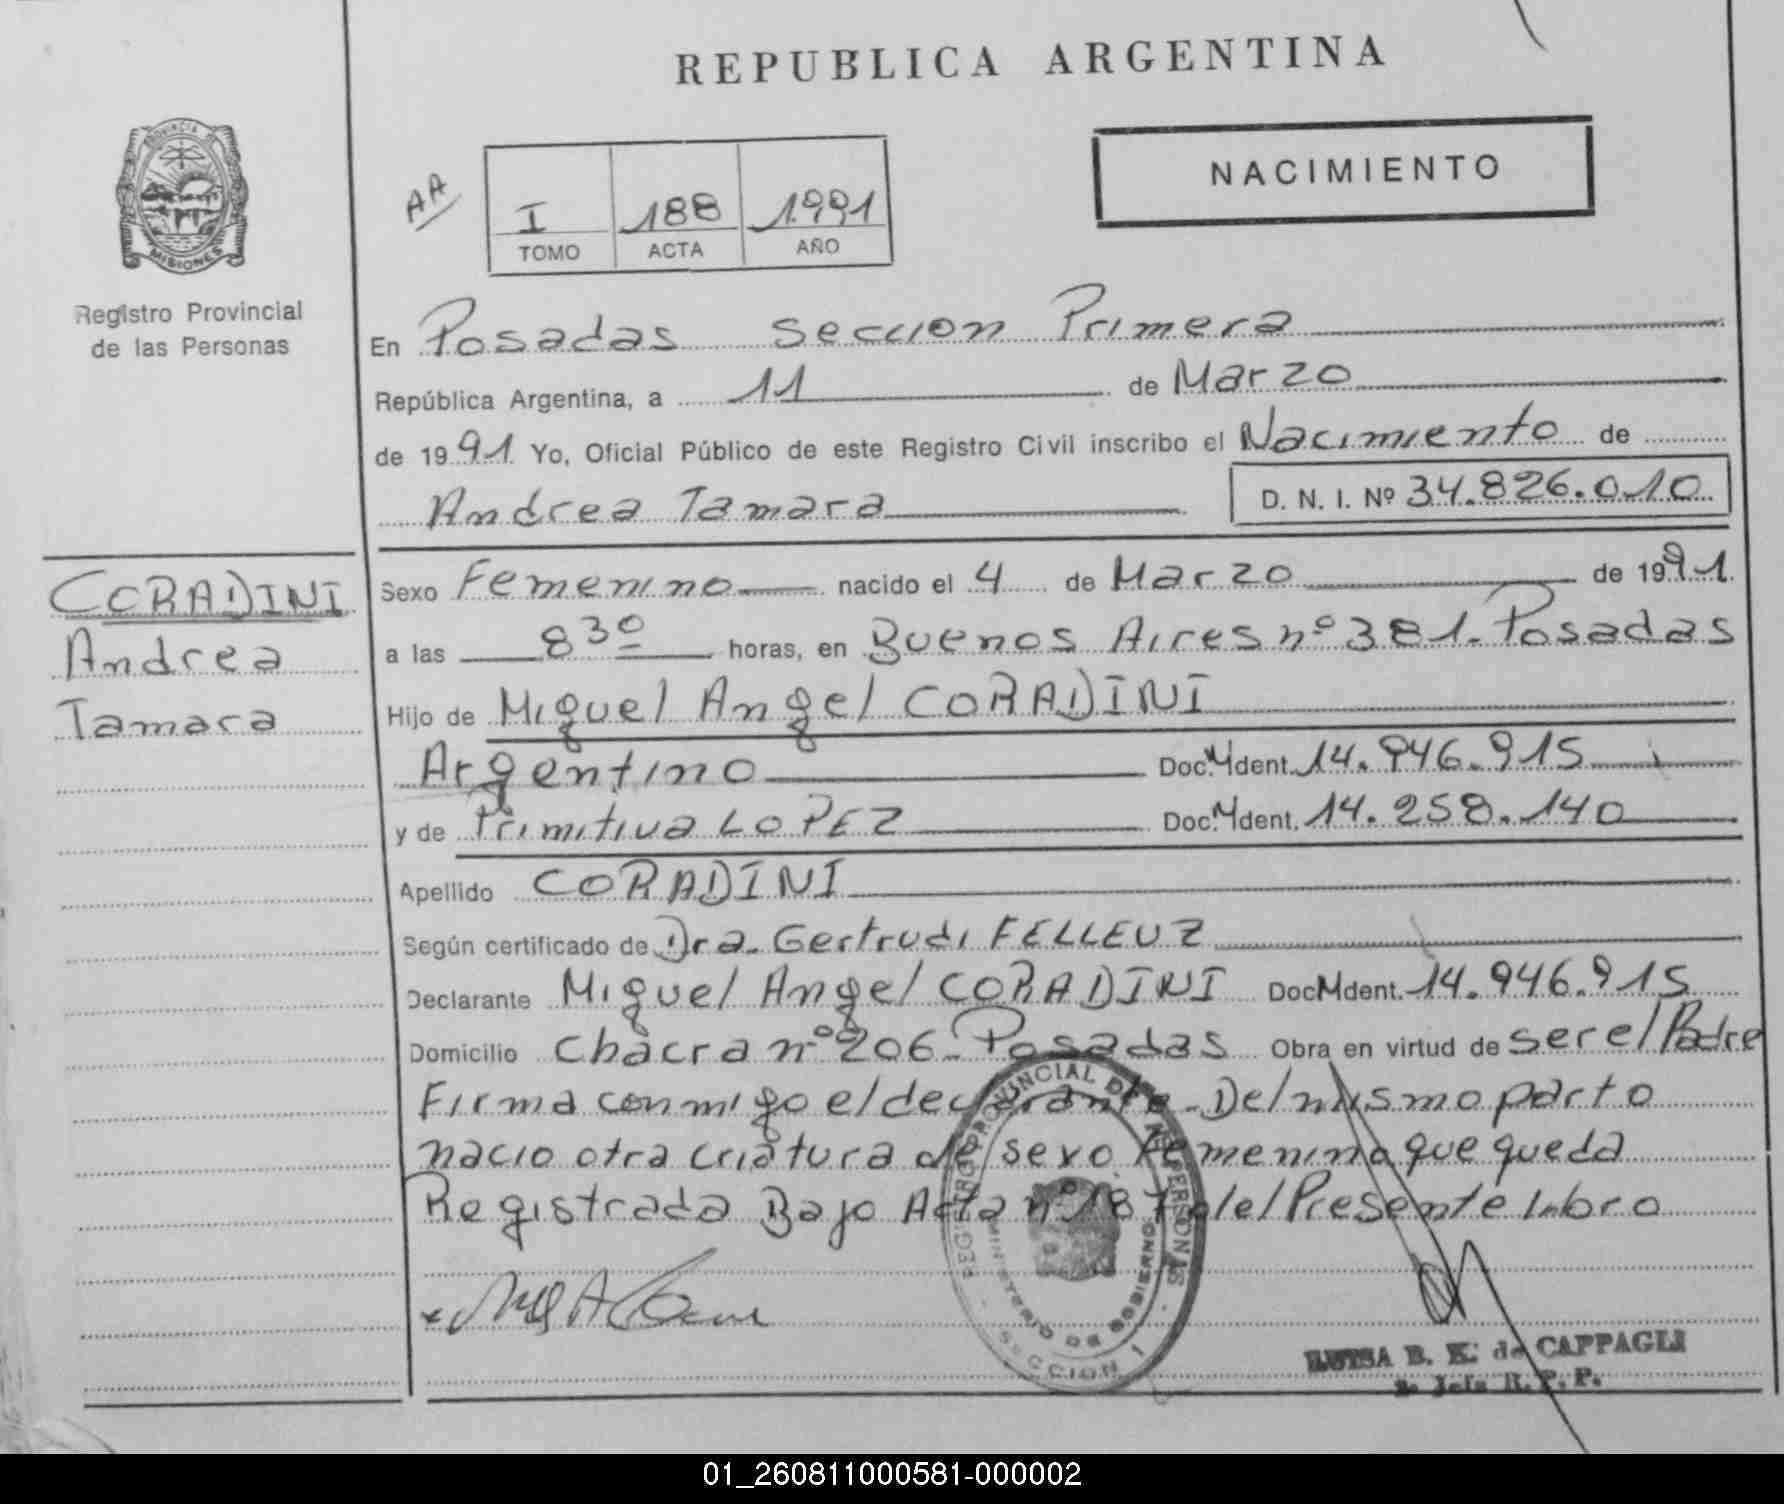 REPUBLICA ARGENTINA
PROVINCIA DE
MISIONES
Registro Provincial
de las Personas
AA
I 188 1.991
TOMO ACTA AÑO
NACIMIENTO
En Posadas seccion Primera
República Argentina, a 11 de Marzo
de 1991 Yo, Oficial Público de este Registro Civil inscribo el Nacimiento de
Andrea Tamara D. N. I. Nº 34.826.010
CORADINI
Andrea
Tamara
Sexo Femenino nacido el 4 de Marzo de 1991.
a las 8 30 horas, en Buenos Aires nº 381. Posadas
Hijo de Miguel Angel CORADINI
Argentino Doc. Ident. 14.946.915
y de Primitiva LOPEZ Doc. Ident. 14.258.140
Apellido CORADINI
Según certificado de Dra. Gertrudi FELLEUZ
Declarante Miguel Angel CORADINI Doc. Ident. 14.946.915
Domicilio Chacra nº 206 - Posadas Obra en virtud de ser el Padre
Firma conmigo el declarante - Del mismo parto
nacio otra criatura de sexo Femenino que queda
Registrada Bajo Acta nº 187 del Presente Libro
REGISTRO PROVINCIAL DE LAS PERSONAS
MINISTERIO DE GOBIERNO
SECCION 1
LUISA B. K. de CAPPAGLI
Jefe R. P. P.
01_260811000581-000002